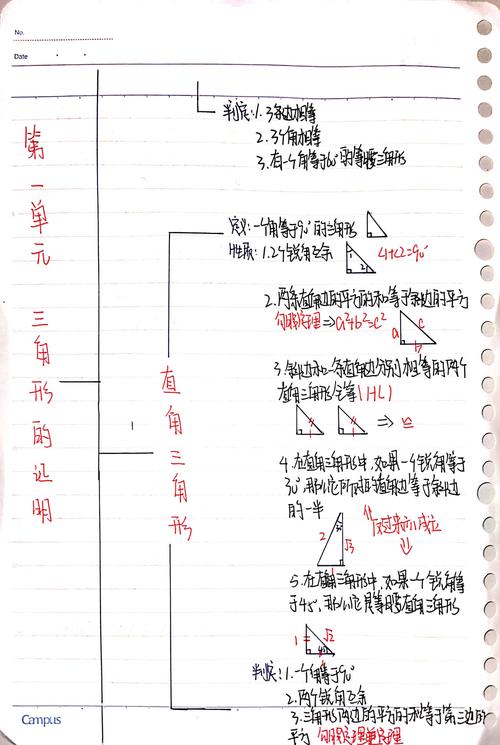 No.
Date
第一单元 三角形的证明
判定:1.3条边相等
2.3个角相等
3.有一个角等于60°的等腰三角形
直角三角形
定义:一个角等于90°的三角形
性质:1.2个锐角互余
1
2
∠1+∠2=90°
2.两条直角边的平方的和等于斜边的平方
勾股定理⇒a²+b²=c²
a
c
b
3.斜边和一条直角边分别相等的两个
直角三角形全等(HL)
⇒≌
4.在直角三角形中,如果一个锐角等于
30°,那么它所对的直角边等于斜边
的一半
2
30°
√3
1
反过来亦成立
5.在直角三角形中,如果一个锐角等
于45°,那么它是等腰直角三角形
1
√2
45°
1
判定:1.一个角等于90°
2.两个锐角互余
3.三角形两边的平方的和等于第三边的
平方 勾股定理逆定理
Campus